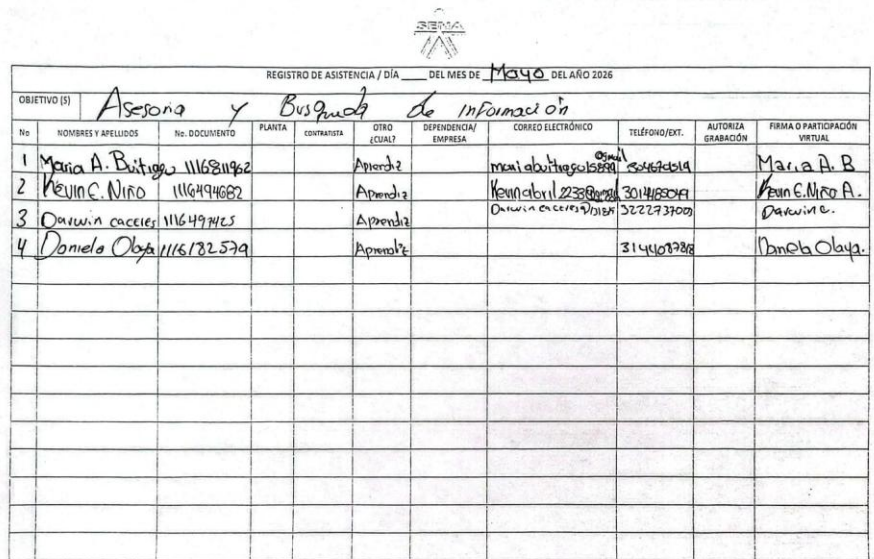 SENA
REGISTRO DE ASISTENCIA / DÍA ____ DEL MES DE Mayo DEL AÑO 2026
OBJETIVO (S) Asesoria y Busqueda de información
No NOMBRES Y APELLIDOS No. DOCUMENTO PLANTA CONTRATISTA OTRO ¿CUAL? DEPENDENCIA/ EMPRESA CORREO ELECTRÓNICO TELÉFONO/EXT. AUTORIZA GRABACIÓN FIRMA O PARTICIPACIÓN VIRTUAL
1 Maria A. Buitrago 1116811962 Aprendiz Maria A. B
2 Kevin E. Niño 1116494682 Aprendiz Kevin E. Niño A.
3 Darwin caceres 1116497425 Aprendiz 3222737007 Darwin c.
4 Daniela Olaya 1116182579 Aprendiz Daniela Olaya.